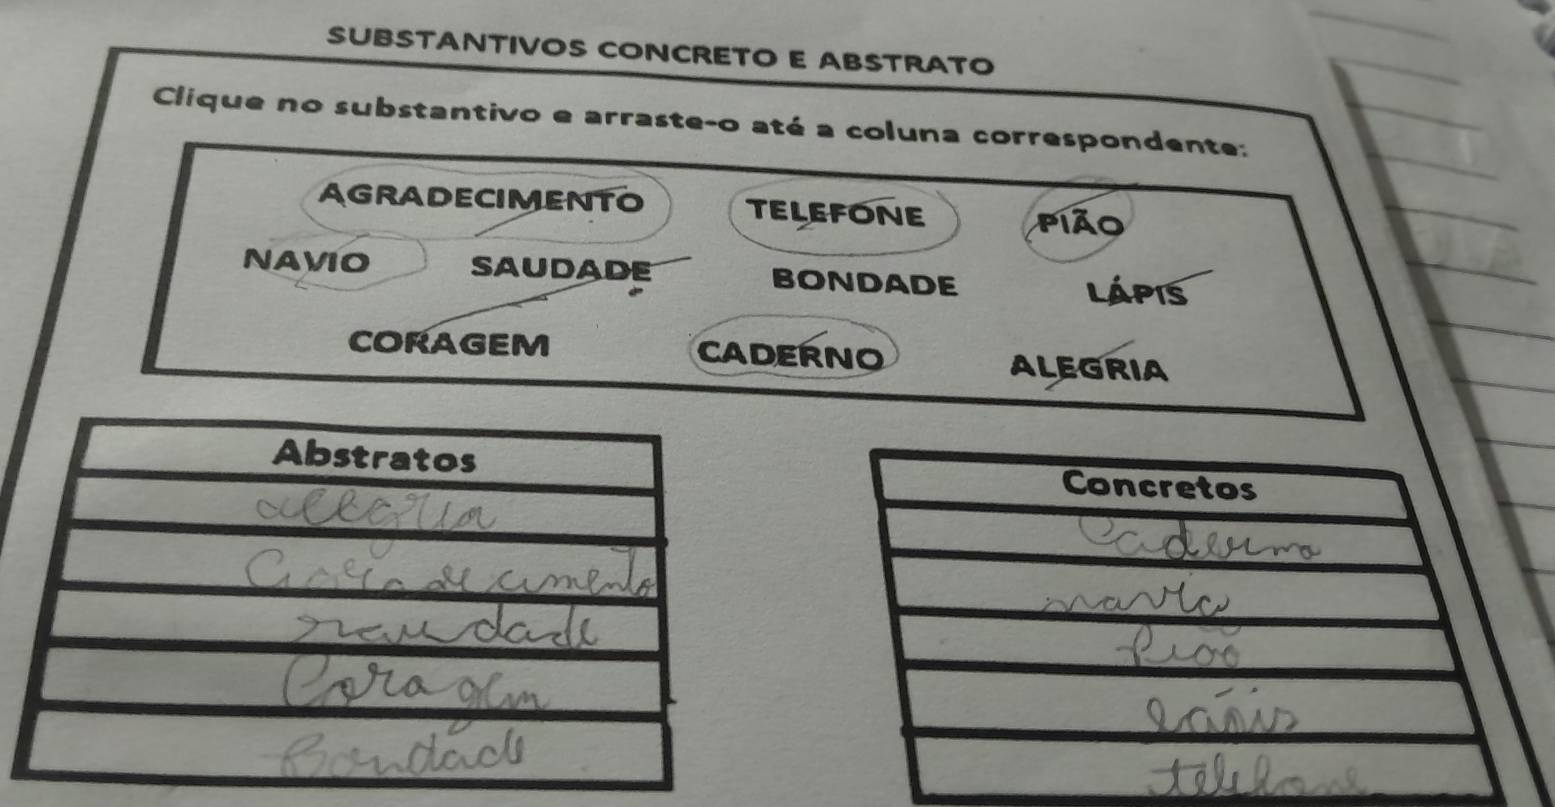 SUBSTANTIVOS CONCRETO E ABSTRATO
Clique no substantivo e arraste-o até a coluna correspondente:
AGRADECIMENTO TELEFONE PIÃO
NAVIO SAUDADE BONDADE LÁPIS
CORAGEM CADERNO ALEGRIA
Abstratos
alegria
Agradecimento
saudade
Coragem
Bondade
Concretos
Caderno
navio
Pião
lápis
telefone